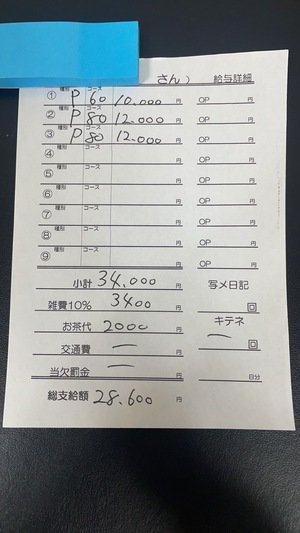 さん） 給与詳細
① 種別 P コース 60 10,000 円 OP 円
② 種別 P コース 80 12,000 円 OP 円
③ 種別 P コース 80 12,000 円 OP 円
④ 種別 コース 円 OP 円
⑤ 種別 コース 円 OP 円
⑥ 種別 コース 円 OP 円
⑦ 種別 コース 円 OP 円
⑧ 種別 コース 円 OP 円
⑨ 種別 コース 円 OP 円
小計 34,000 円 写メ日記
雑費10% 3400 円 回
お茶代 2000 円 キテネ
交通費 ー 円 ー 回
当欠罰金 ー 円 日分
総支給額 28,600 円